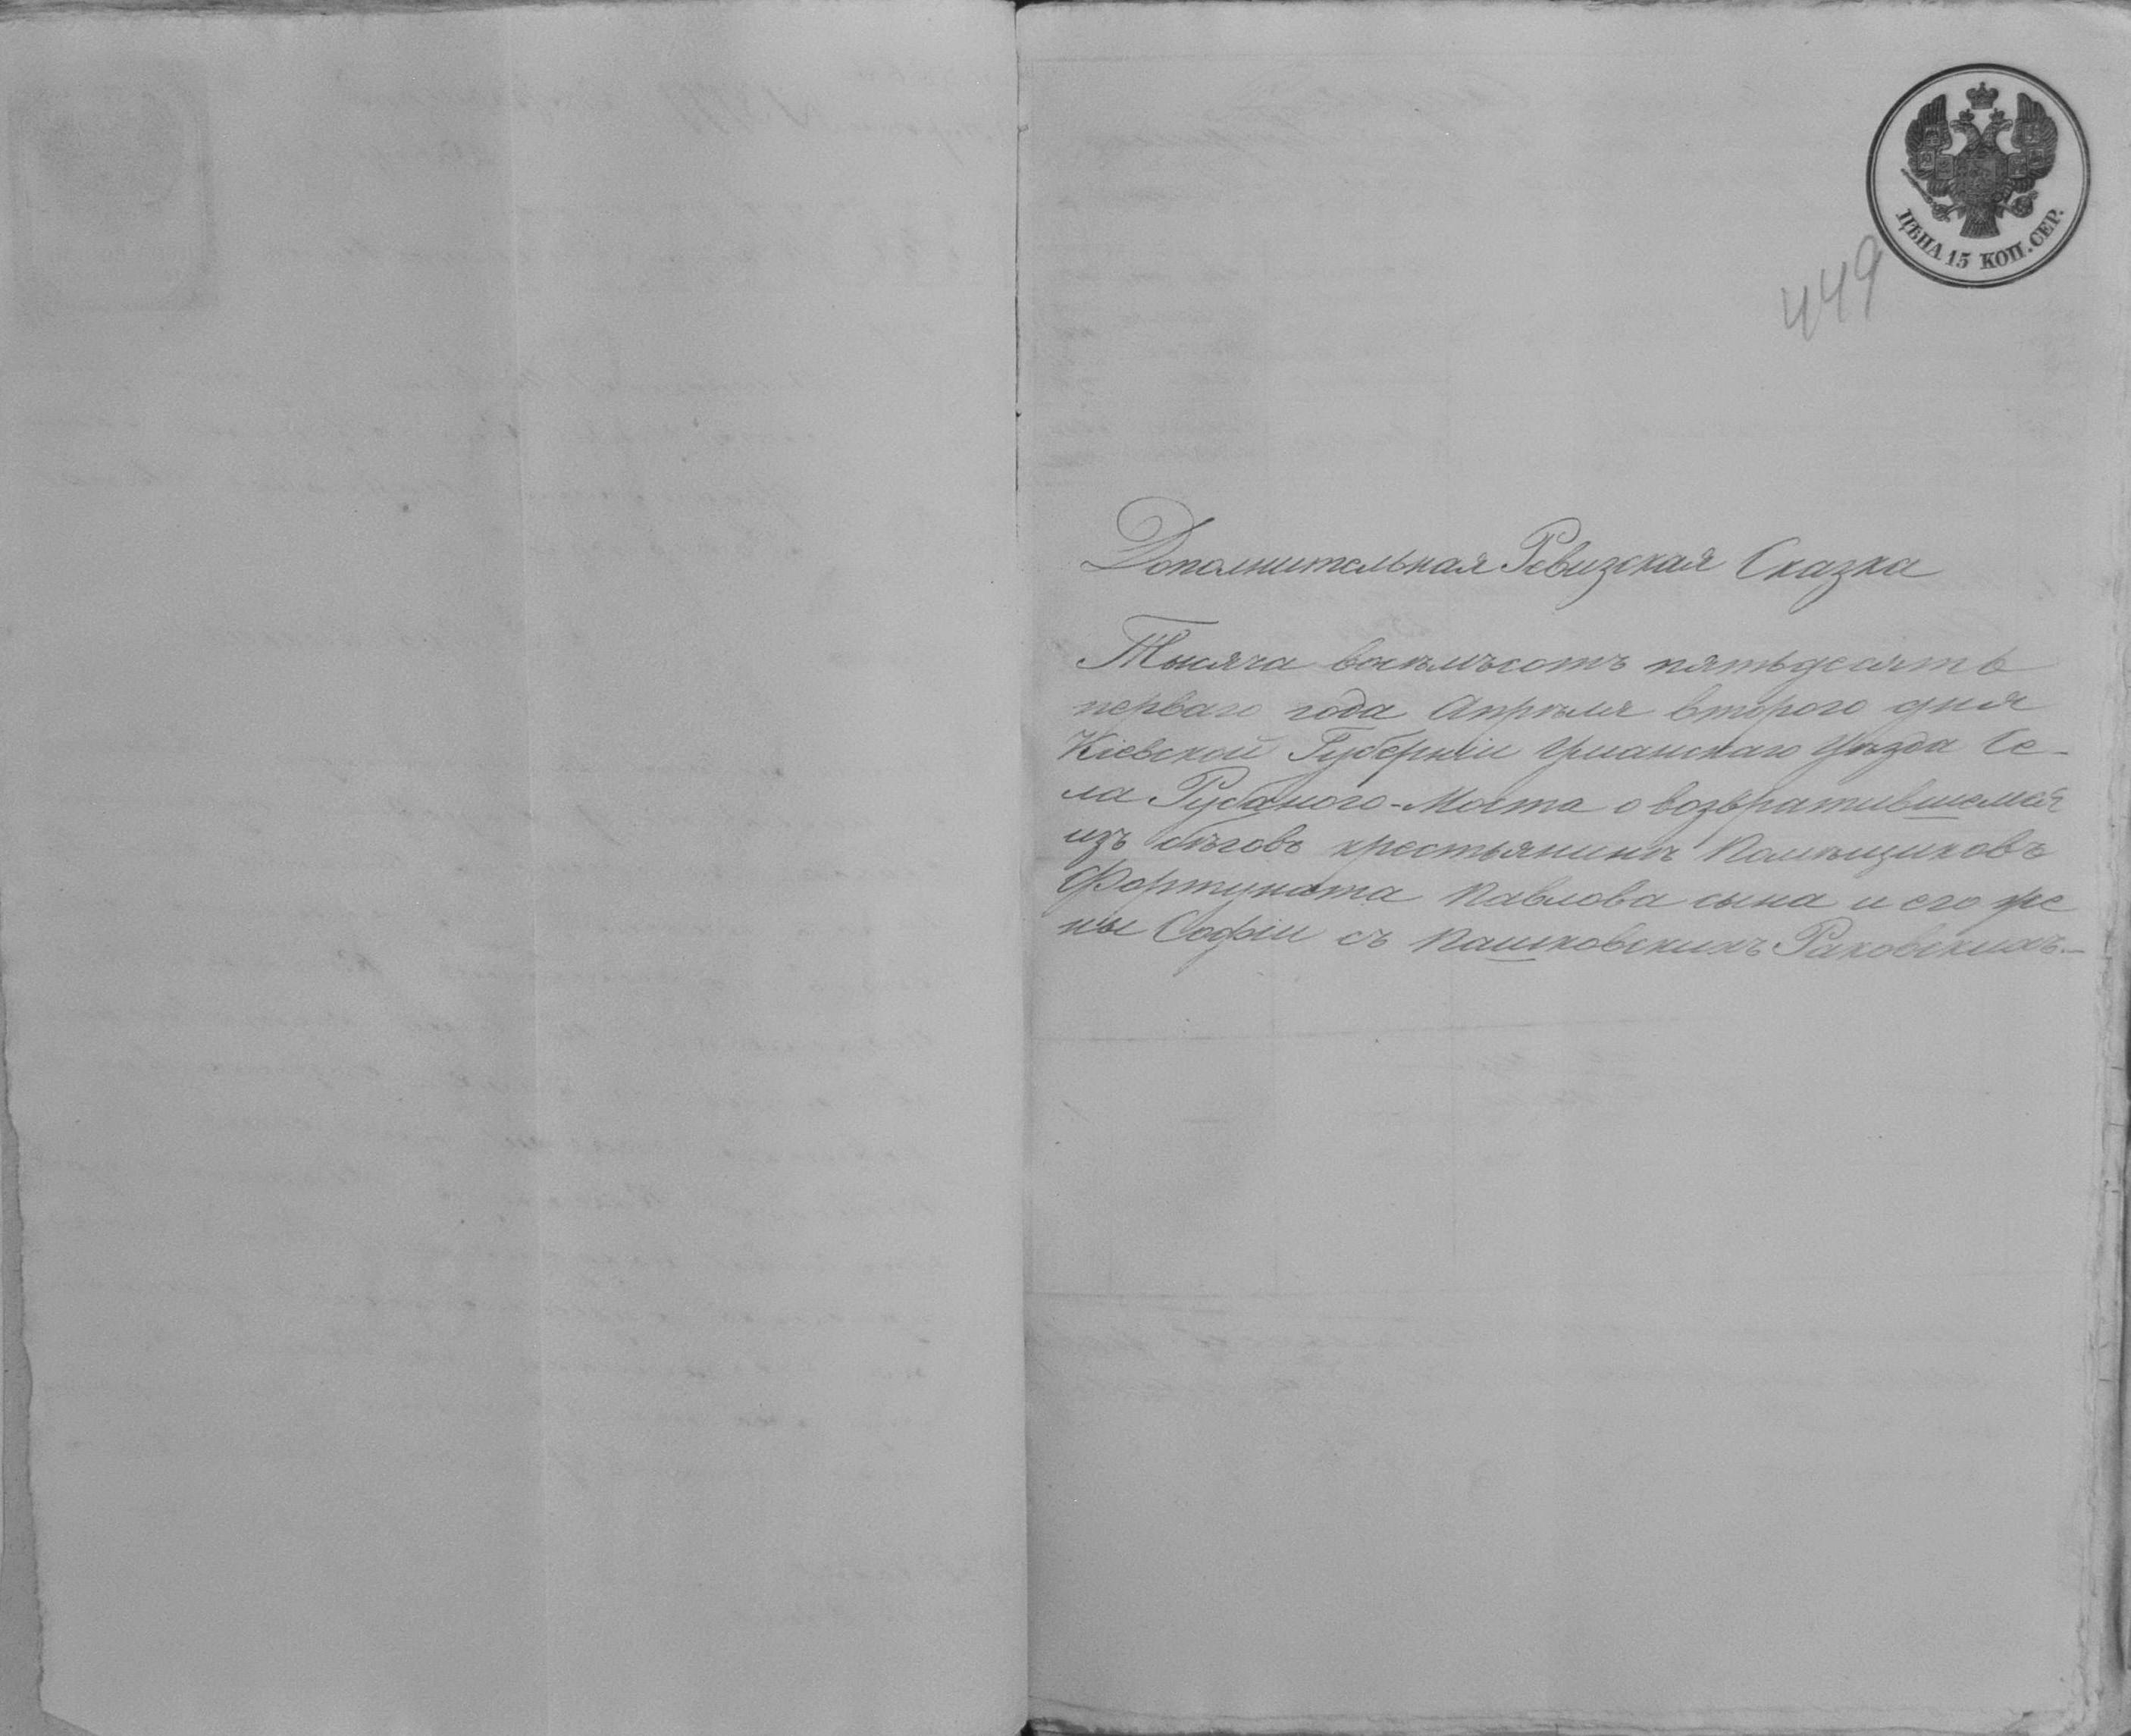 ЦѢНА 15 КОП. СЕР.
449
Дополнительная Ревизская Сказка
Тысяча восѣмьсотъ пятьдесятъ
перваго года Апрѣля втораго дня
Кіевской Губерніи Уманскаго Уѣзда Се-
ла Рубаного-Моста о возвратившемся
изъ бѣговъ крестьянинѣ Помѣщиковъ
Фортуната Павлова сына и его же
ны Софіи съ Пашковскихъ Раковскихъ.—